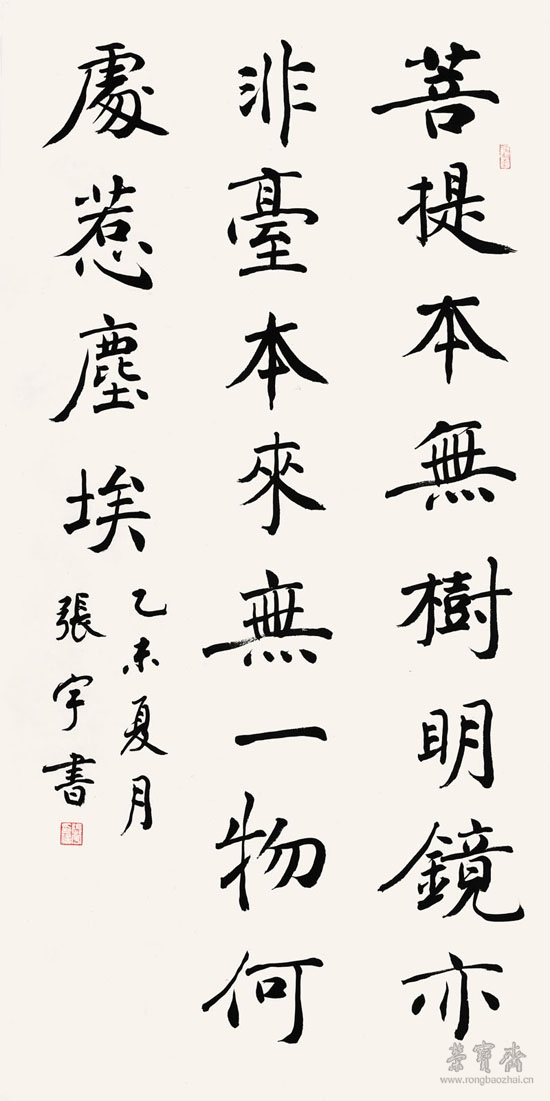 菩提本無樹明鏡亦
非臺本來無一物何
處惹塵埃
乙未夏月
張宇書
榮寶齋
www.rongbaozhai.cn